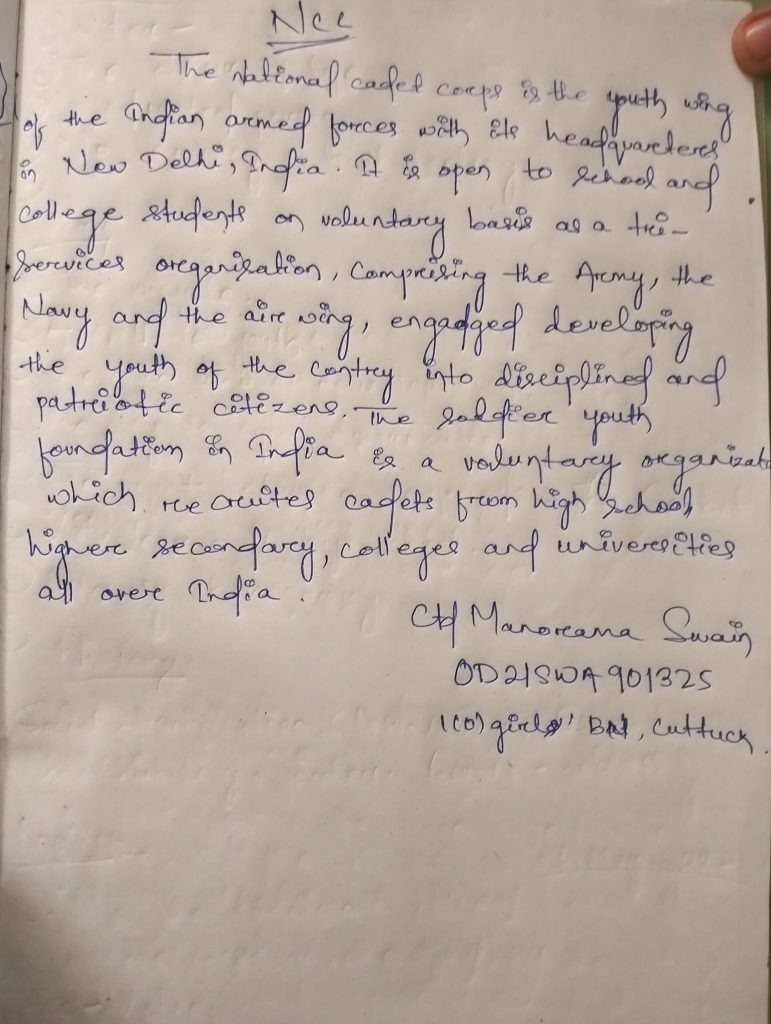 NCC
The National cadet corps is the youth wing
of the Indian armed forces with its headquareters
in New Delhi, India. It is open to school and
college students on voluntary basis as a tri-
services oreganisation, Compreising the Army, the
Navy and the aire wing, engadged developing
the youth of the contrey into disciplined and
patreiotic citizens. The soldier youth
foundation in India is a voluntary oreganizati
which recruites cadets from high school,
higher secondary, colleges and univeresities
all overe India.
Ctd Manoreama Swain
OD21SWA901325
1(O) girls' BN, Cuttuck.